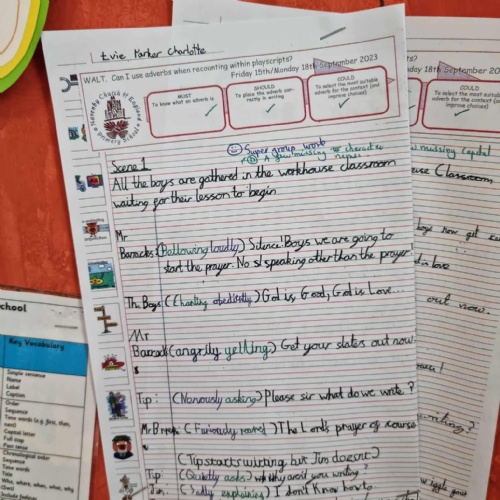 Evie Parker Charlotte
WALT. Can I use adverbs when recounting within playscripts?
Friday 15th/Monday 18th September 2023
MUST
To know what an adverb is
SHOULD
To place the adverb correctly in writing
COULD
To select the most suitable adverb for the context (and improve choices)
Super group work
A few missing character names
Scene 1
All the boys are gathered in the workhouse classroom
waiting for their lesson to begin
Mr
Barracks: (Bellowing loudly) Silence! Boys we are going to
start the prayer. No speaking other than the prayer!
The Boys (Chanting obediently) God is Good, God is Love...
Mr
Barracks (angrily yelling) Get your slates out now.
Tip: (Nervously asking) Please sir what do we write?
(Furiously roared) The Lord's prayer of course
(Tip starts writing but Jim doesn't)
Tip: (Quietly asks) why aren't you writing?
Jim: (Sadly explaining) I don't know how to.
18th September 20
COULD
To select the most suitable
adverb for the context (and
improve choices)
missing capital
Classroom
boys now get
love
out now.
writing?
chool
Key Vocabulary
Simple sentence
Name
Label
Caption
Order
Sequence
Time words (e.g. first, then, next)
Capital letter
Full stop
Past tense
Chronological order
Sequence
Time words
Title
Who, where, when, what, why